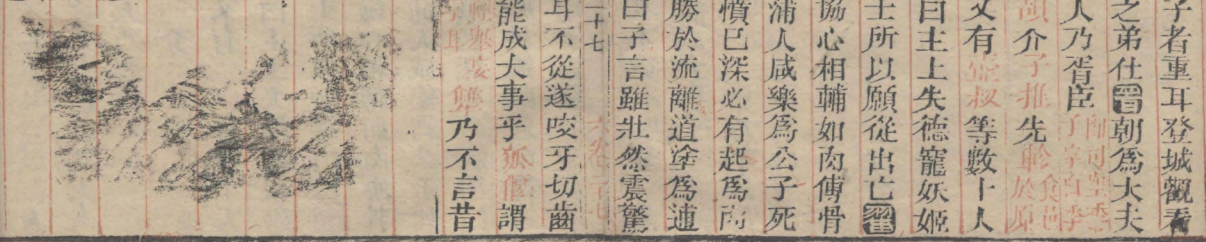 子者重耳登城觀看
之弟仕晉朝爲大夫
人乃胥臣
頡介子推先
又有壺叔等數十人
曰主上失德寵妖姬
士所以願從出亡翟
協心相輔如肉傅骨
蒲人咸樂爲公子死
憤已深必有起爲內
勝於流離道塗爲逋
曰子言雖壯然震驚
十七
耳不從遂咬牙切齒
能成大事乎狐偃謂
乃不言昔